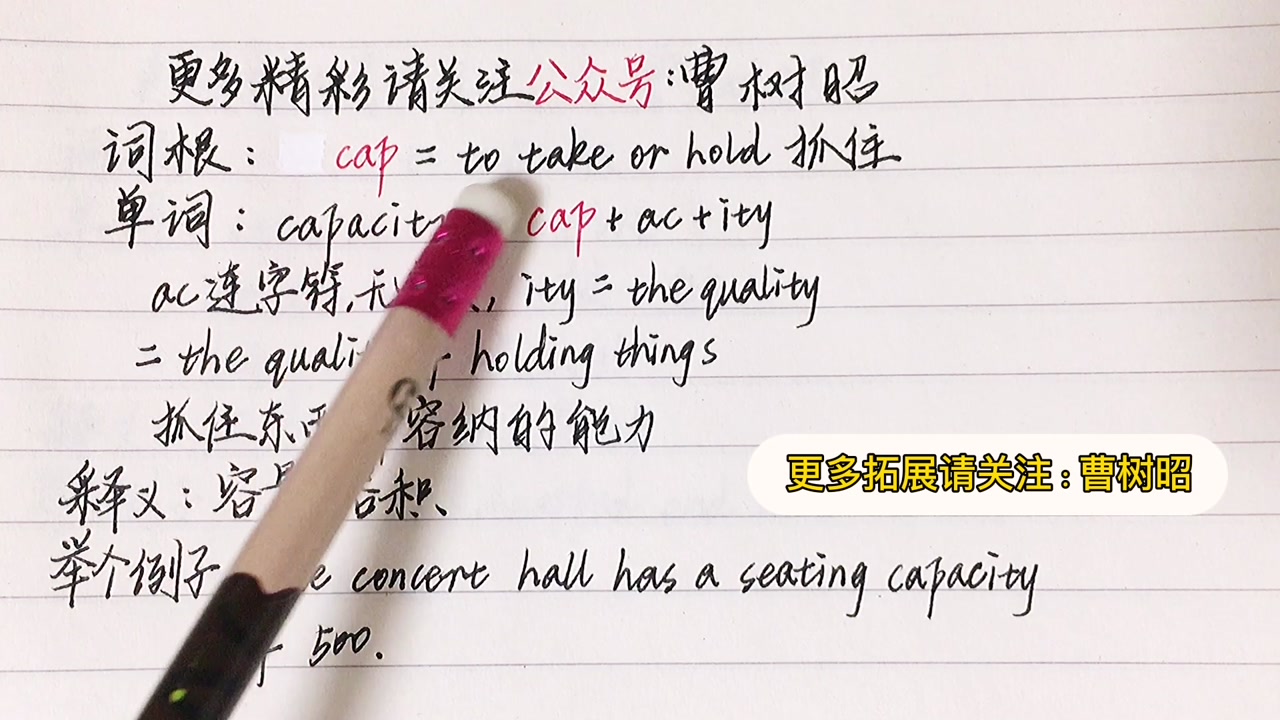 更多精彩请关注公众号:曹树昭
词根: cap = to take or hold 抓住
单词: capacity cap + ac + ity
ac连字符, ity = the quality
= the quality holding things
抓住东西 容纳的能力
释义: 容 积
举个例子 concert hall has a seating capacity
500.
更多拓展请关注:曹树昭